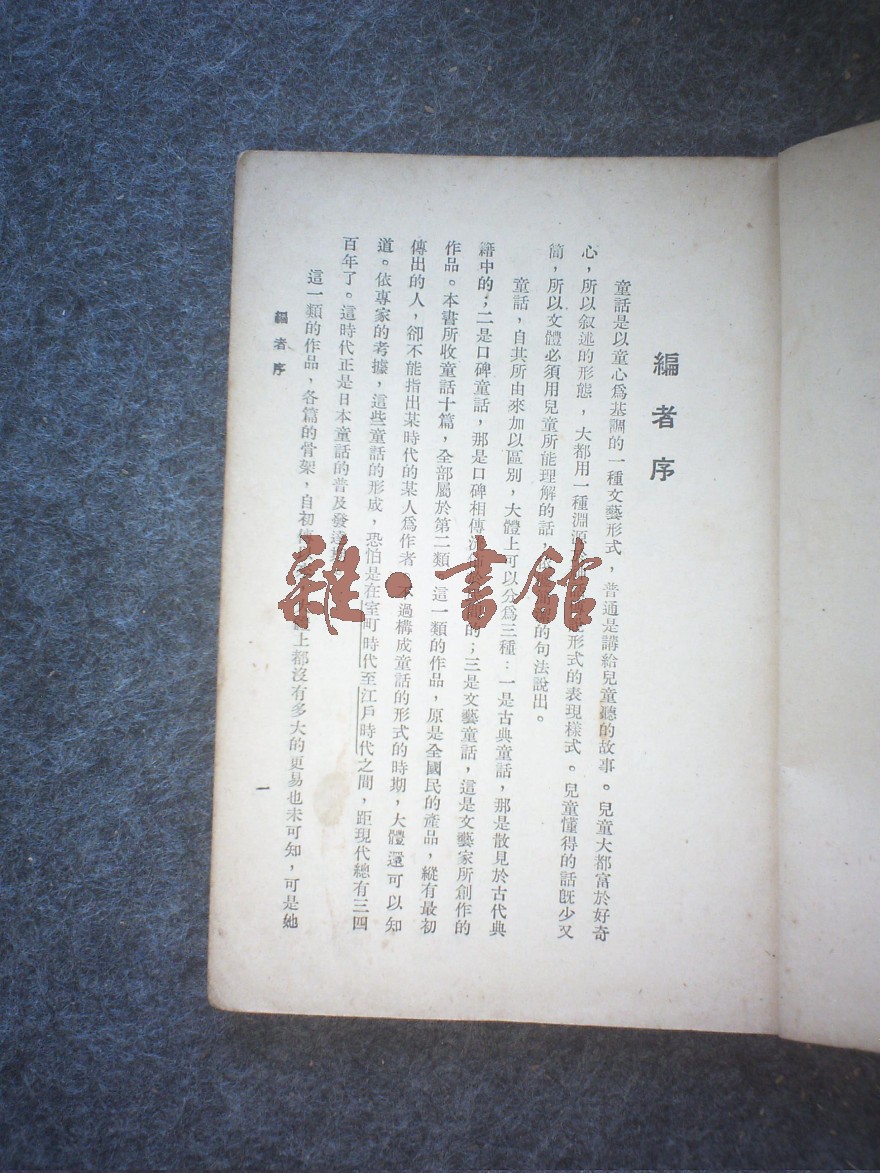 編者序
童話是以童心爲基調的一種文藝形式，普通是講給兒童聽的故事。兒童大都富於好奇
心，所以叙述的形態，大都用一種淵源形式的表現樣式。兒童懂得的話旣少又
簡，所以文體必須用兒童所能理解的話，的句法說出。
童話，自其所由來加以區別，大體上可以分爲三種：一是古典童話，那是散見於古代典
籍中的；二是口碑童話，那是口碑相傳的；三是文藝童話，這是文藝家所創作的
作品。本書所收童話十篇，全部屬於第二類這一類的作品，原是全國民的產品，縱有最初
傳出的人，卻不能指出某時代的某人爲作者不過構成童話的形式的時期，大體還可以知
道。依專家的考據，這些童話的形成，恐怕是在室町時代至江戶時代之間，距現代總有三四
百年了。這時代正是日本童話的普及發達
這一類的作品，各篇的骨架，自初上都沒有多大的更易也未可知，可是她
編者序
一
雜·書館